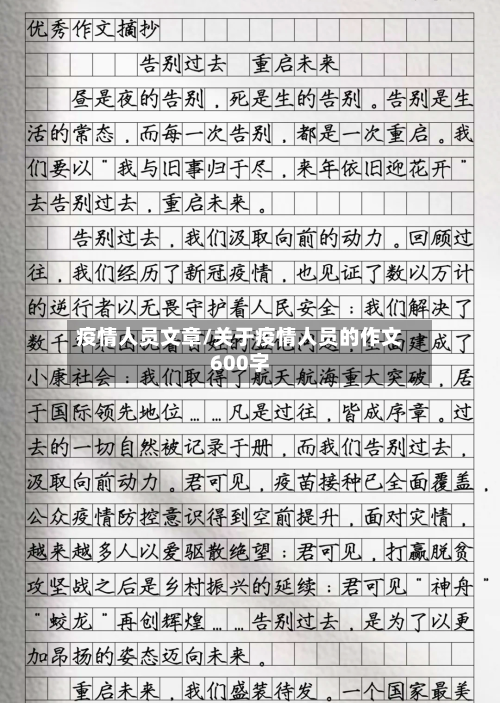 优秀作文摘抄
告别过去 重启未来
昼是夜的告别，死是生的告别。告别是生
活的常态，而每一次告别，都是一次重启。我
们要以“我与旧事归于尽，来年依旧迎花开”
去告别过去，重启未来。
告别过去，我们汲取向前的动力。回顾过
往，我们经历了新冠疫情，也见证了数以万计
的逆行者以无畏守护着人民安全：我们解决了
数千
建成了
疫情人员文章/关于疫情人员的作文
600字
小康社会：我们取得了航天航海重大突破，居
于国际领先地位……凡是过往，皆成序章。过
去的一切自然被记录于册，而我们告别过去，
汲取向前动力。君可见，疫苗接种已全面覆盖，
公众疫情防控意识得到空前提升，面对灾情，
越来越多人以爱驱散绝望：君可见，打赢脱贫
攻坚战之后是乡村振兴的延续：君可见“神舟”
“蛟龙”再创辉煌……告别过去，是为了以更
加昂扬的姿态迈向未来。
重启未来，我们盛装待发。一个国家最美